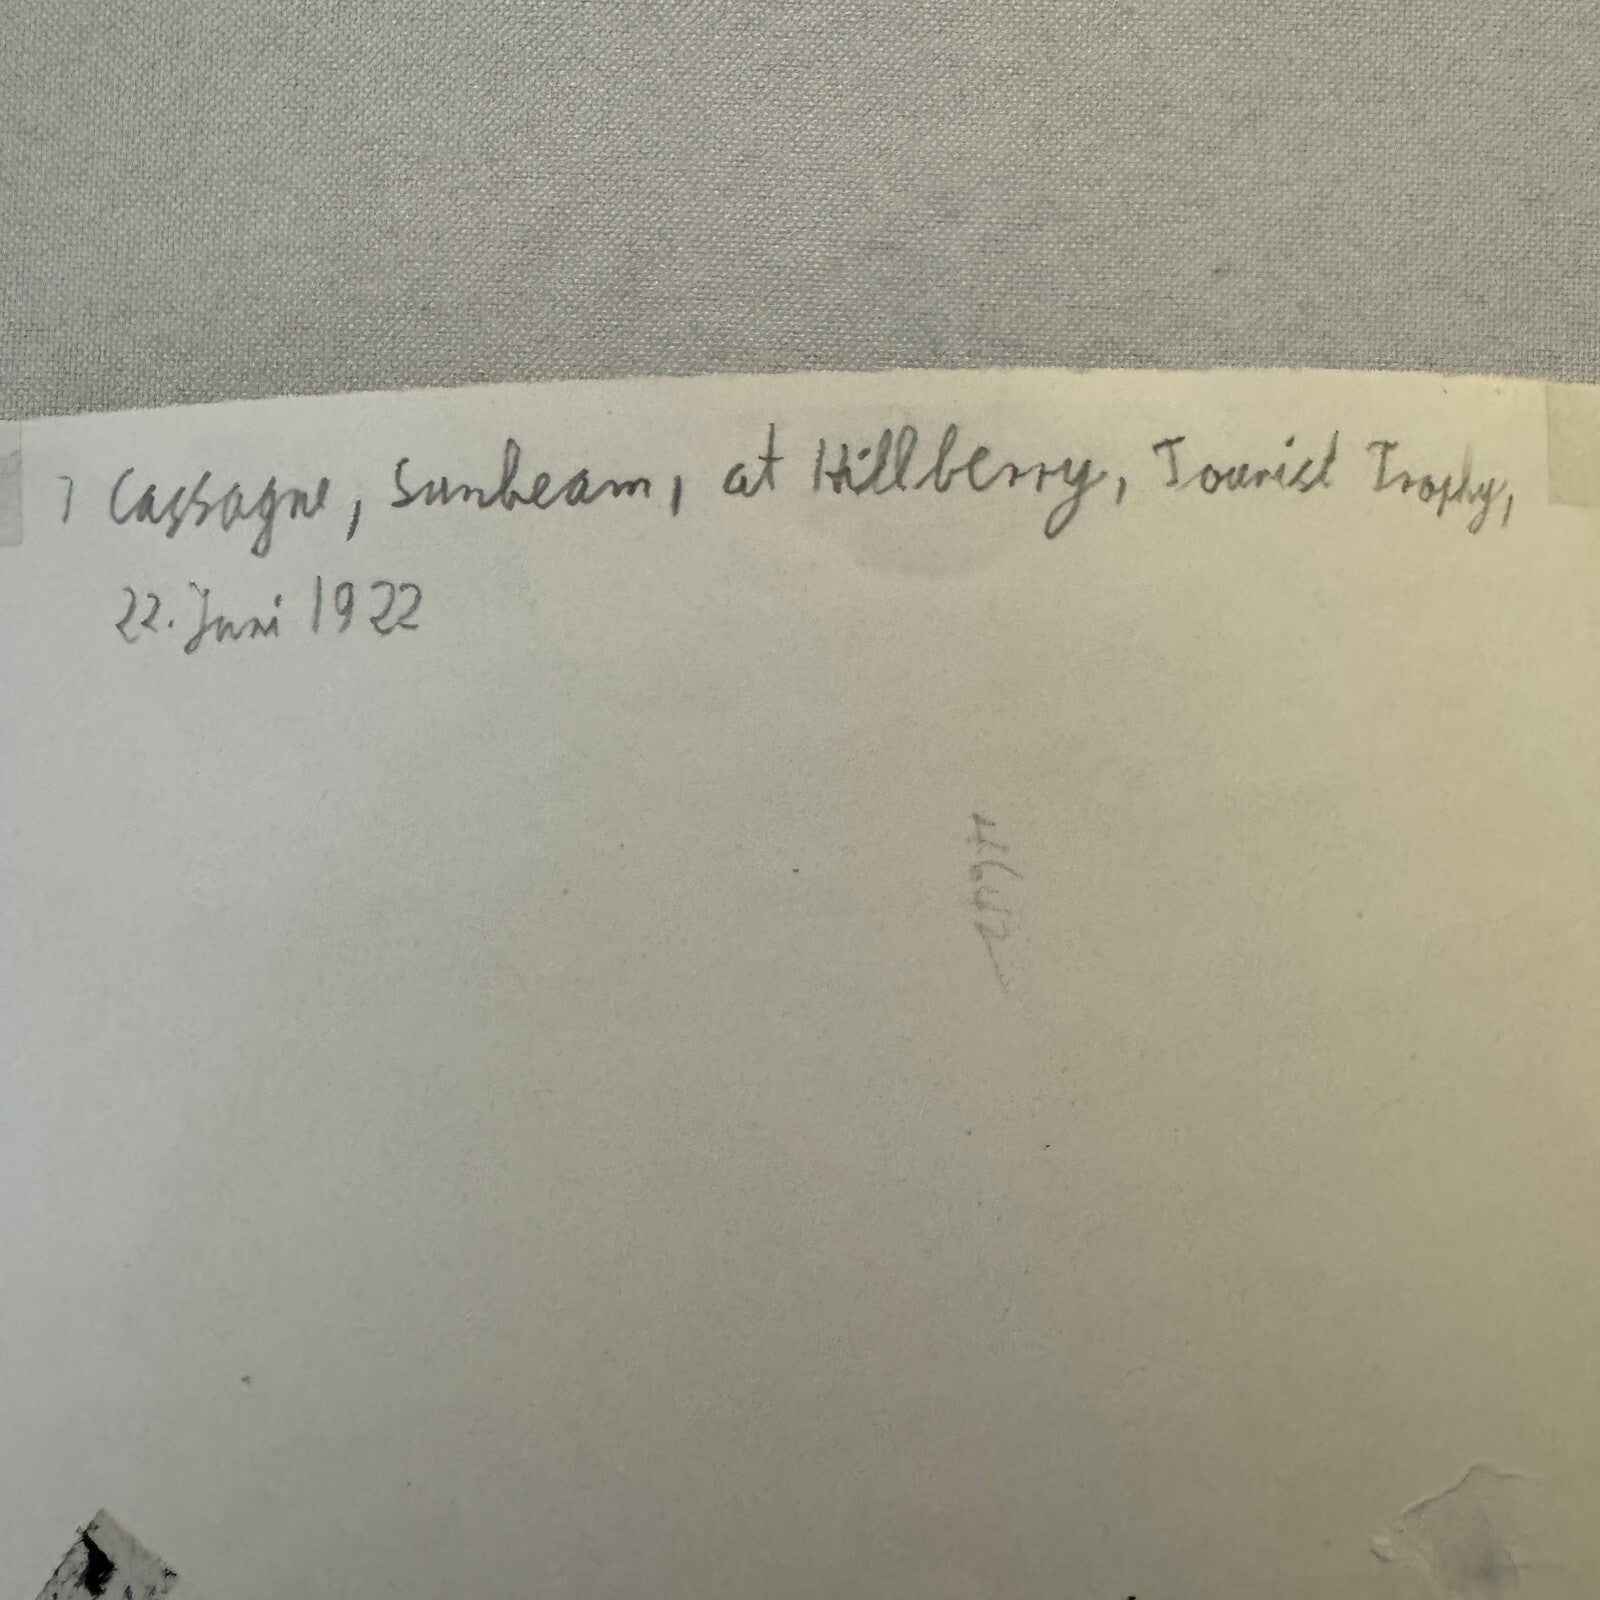 7 Cassagne, Sunbeam, at Hillberry, Tourist Trophy,
22. Juni 1922